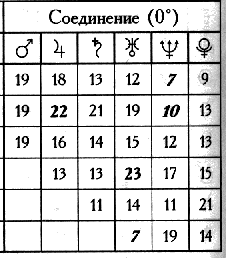 Соединение (0°)
♂ ♃ ♄ ♅ ♆ ♇
19 18 13 12 7 9
19 22 21 19 10 13
19 16 14 15 12 13
13 13 23 17 15
11 14 11 21
7 19 14